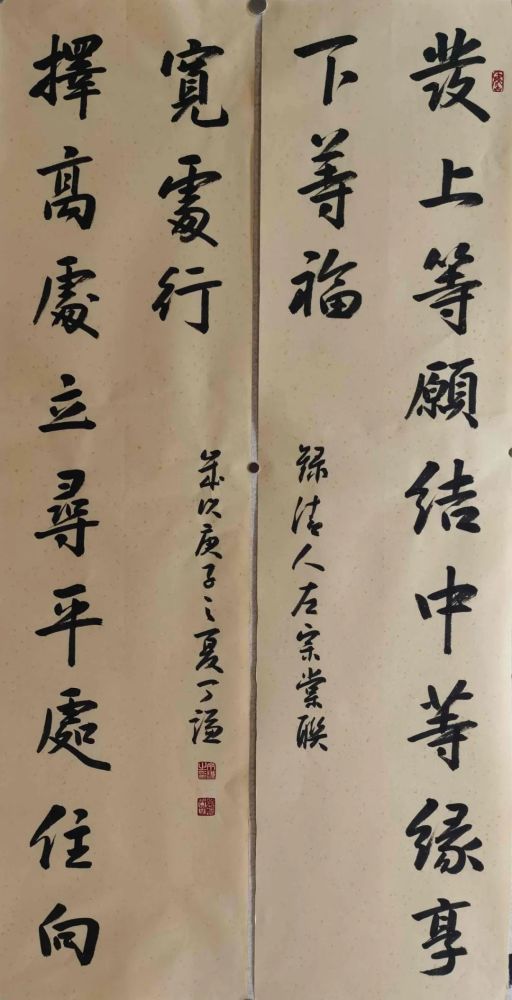 發上等願結中等緣享
下等福
錄清人左宗棠聯
擇高處立尋平處住向
寬處行
歲次庚子之夏丁謙